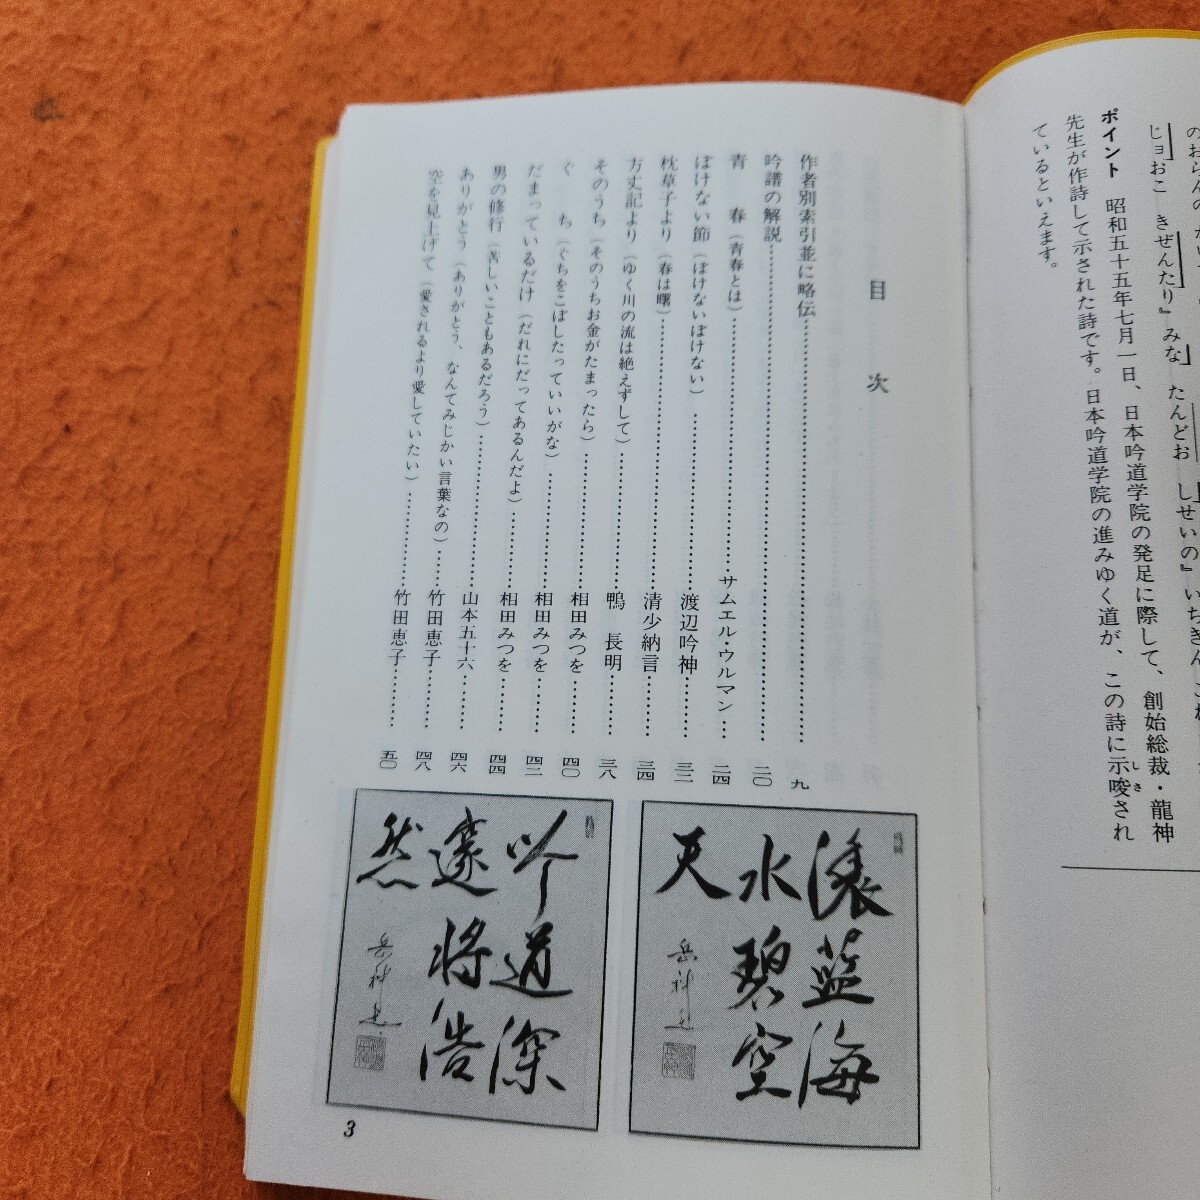 じョおこ きぜんたり』 みな」 たんどお しせいの』
ポイント 昭和五十五年七月一日、日本吟道学院の発足に際して、創始総裁・龍神
先生が作詩して示された詩です。日本吟道学院の進みゆく道が、この詩に示唆され
しさ
ているといえます。
目次
作者別索引並に略伝………九
吟譜の解説………二〇
青春（青春とは）………サムエル・ウルマン…二四
ぼけない節（ぼけないぼけない）………渡辺吟神………三二
枕草子より（春は曙）………清少納言………三四
方丈記より（ゆく川の流は絶えずして）………鴨長明………三八
そのうち（そのうちお金がたまったら）………相田みつを………四〇
ぐち（ぐちをこぼしたっていいがな）………相田みつを………四二
だまっているだけ（だれにだってあるんだよ）………相田みつを………四四
男の修行（苦しいこともあるだろう）………山本五十六………四六
ありがとう（ありがとう、なんてみじかい言葉なの）………竹田恵子………四八
空を見上げて（愛されるより愛していたい）………竹田恵子………五〇
藍海
水碧空
天
岳神
吟道深
邃将浩
然
岳神
3